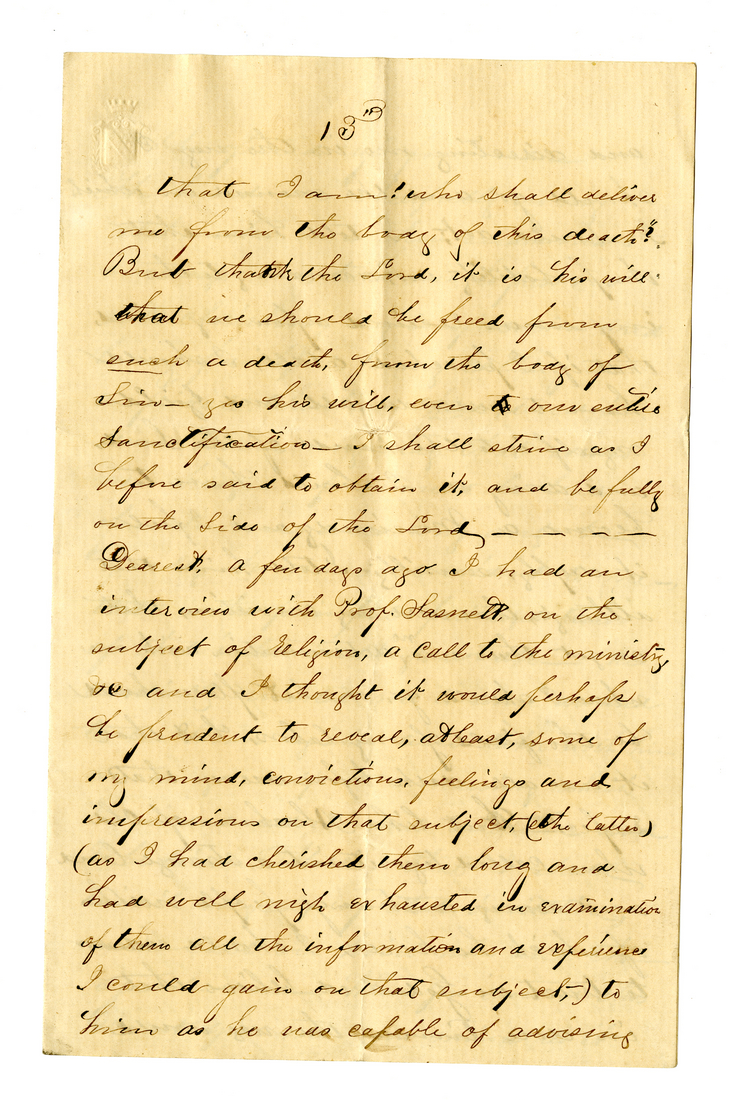 13th
that I am! who shall deliver
me from the body of this death"?
But thank the Lord, it is his will
that we should be freed from
such a death, from the body of
Sin— yes his will, even to our entire
Sanctification— I shall strive as I
before said to obtain it, and be fully
on the Side of the Lord, — — — —
Dearest, a few days ago I had an
interview with Prof. Sasnett, on the
subject of religion, a call to the ministry,
&c and I thought it would perhaps
be prudent to reveal, at least, some of
my mind, convictions, feelings and
impressions on that subject, (the latter)
(as I had cherished them long and
had well nigh exhausted in examination
of them all the information and experience
I could gain on that subject,) to
him as he was capable of advising